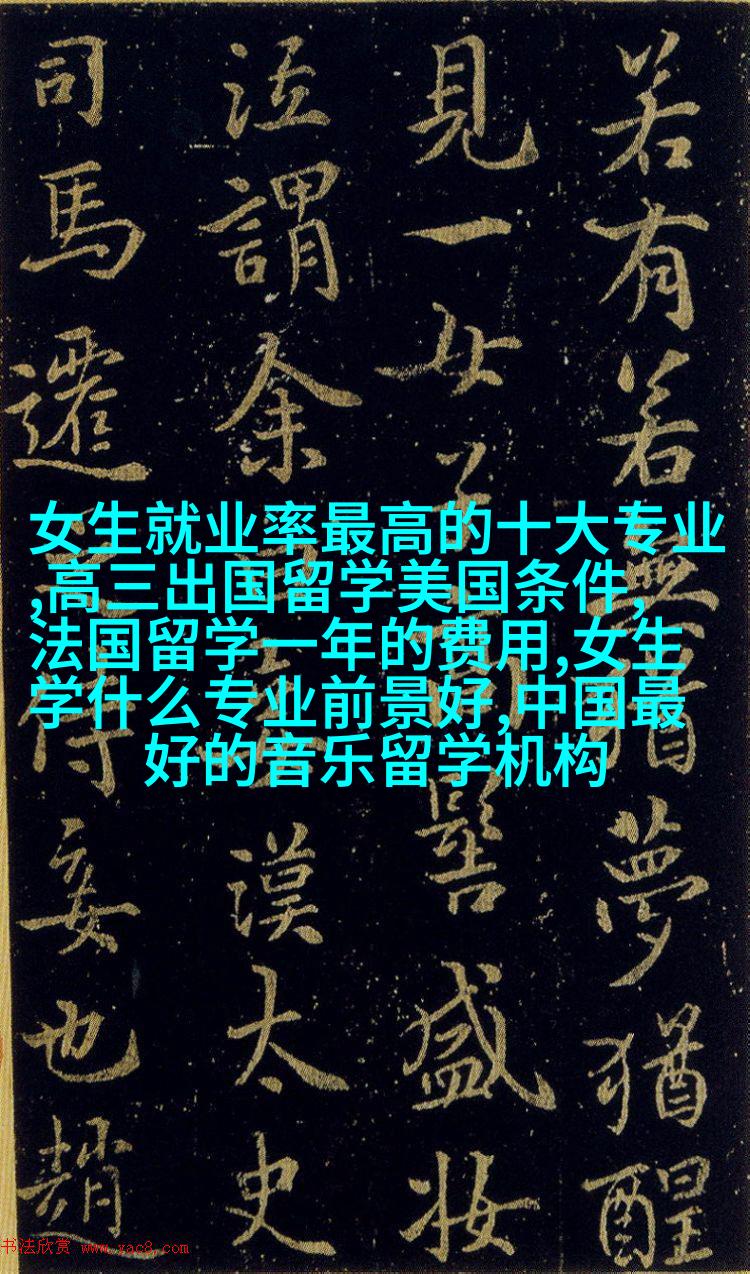 若有若無猶夢猶醒
見一女子 盛妝
泣謂余曰 漢太史
司馬遷之侍妾也趙
女生就业率最高的十大专业
,高三出国留学美国条件,
法国留学一年的费用,女生
学什么专业前景好,中国最
好的音乐留学机构
书法欣赏 www.yac8.com